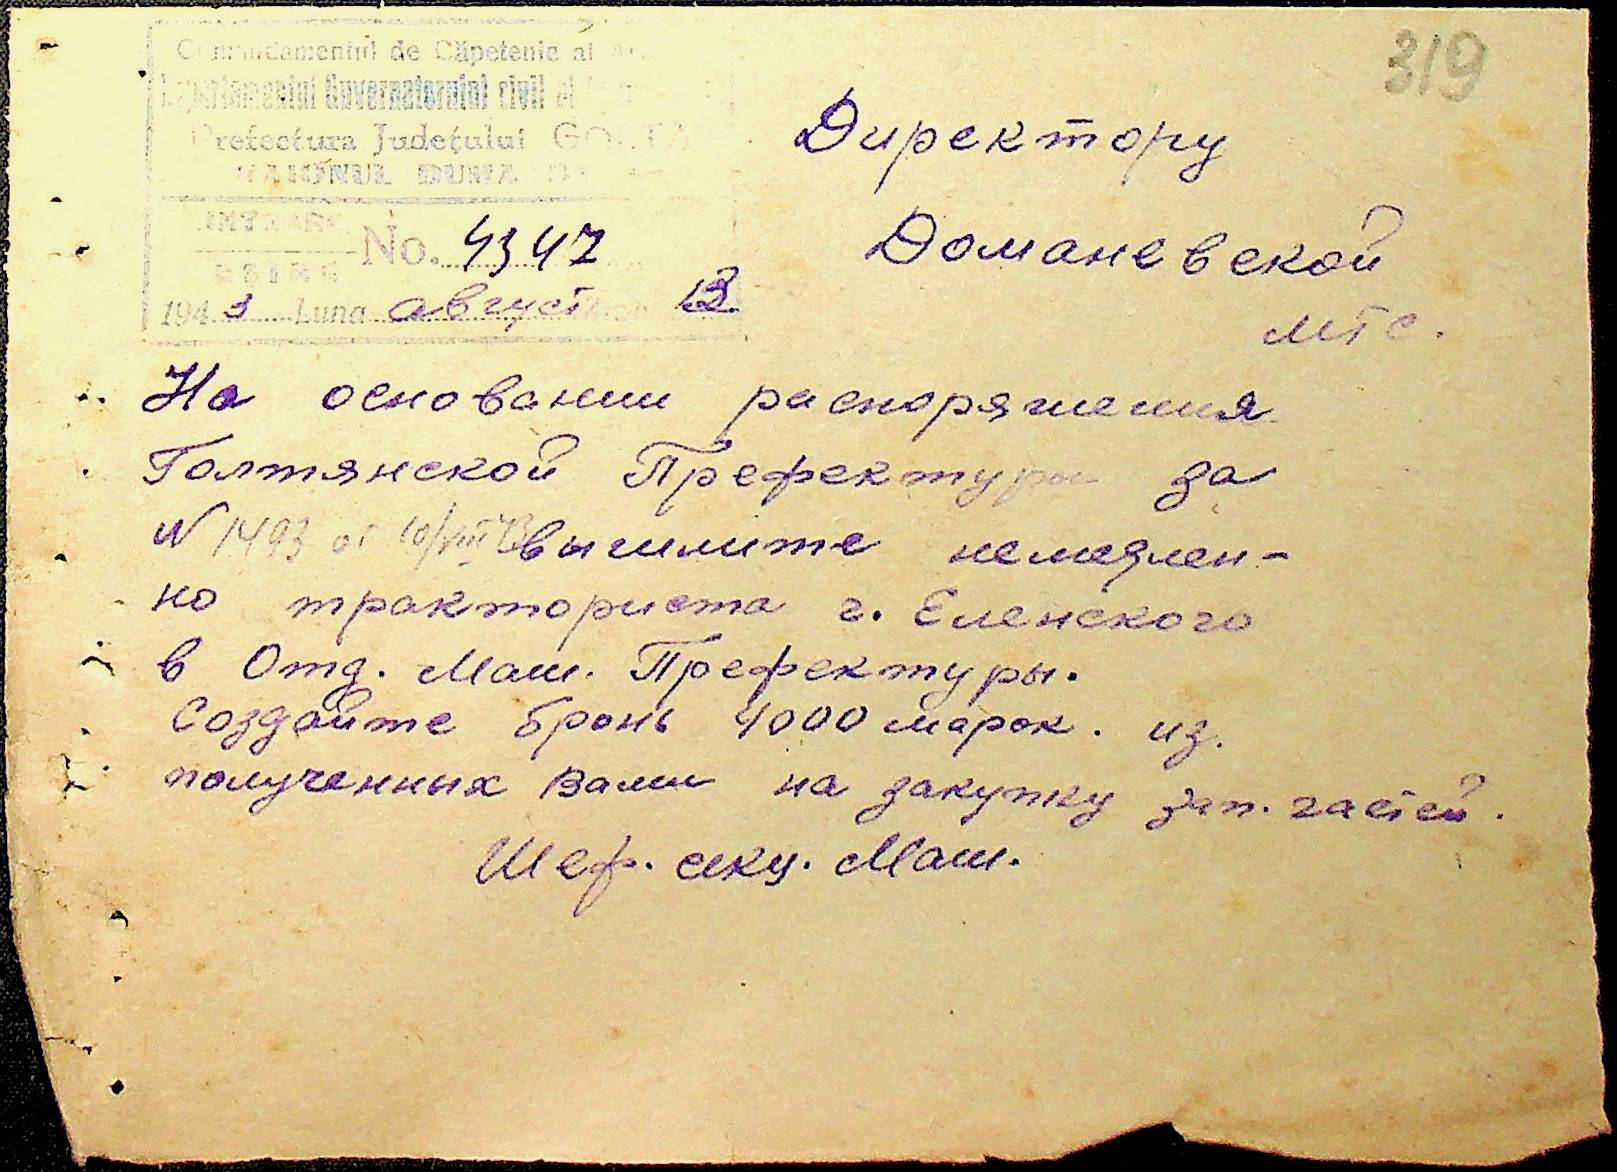 319
Comandamentul de Căpetenie al
Departamentul Guvernatorului civil al
Prefectura Județului GOLTA
RAIONUL DUMA
INTRARE
IEȘIRE
No. 4347
1943 Luna август 13
Директору
Доманевской
мтс.
На основании распоряжения
Голтянской Префектуры за
N 1493 от 10/VIII 43 вышлите немедлен-
но тракториста г. Еленского
в Отд. Маш. Префектуры.
Создайте бронь 4000 марок. из.
полученных Вами на закупку зап. частей.
Шеф. секц. Маш.